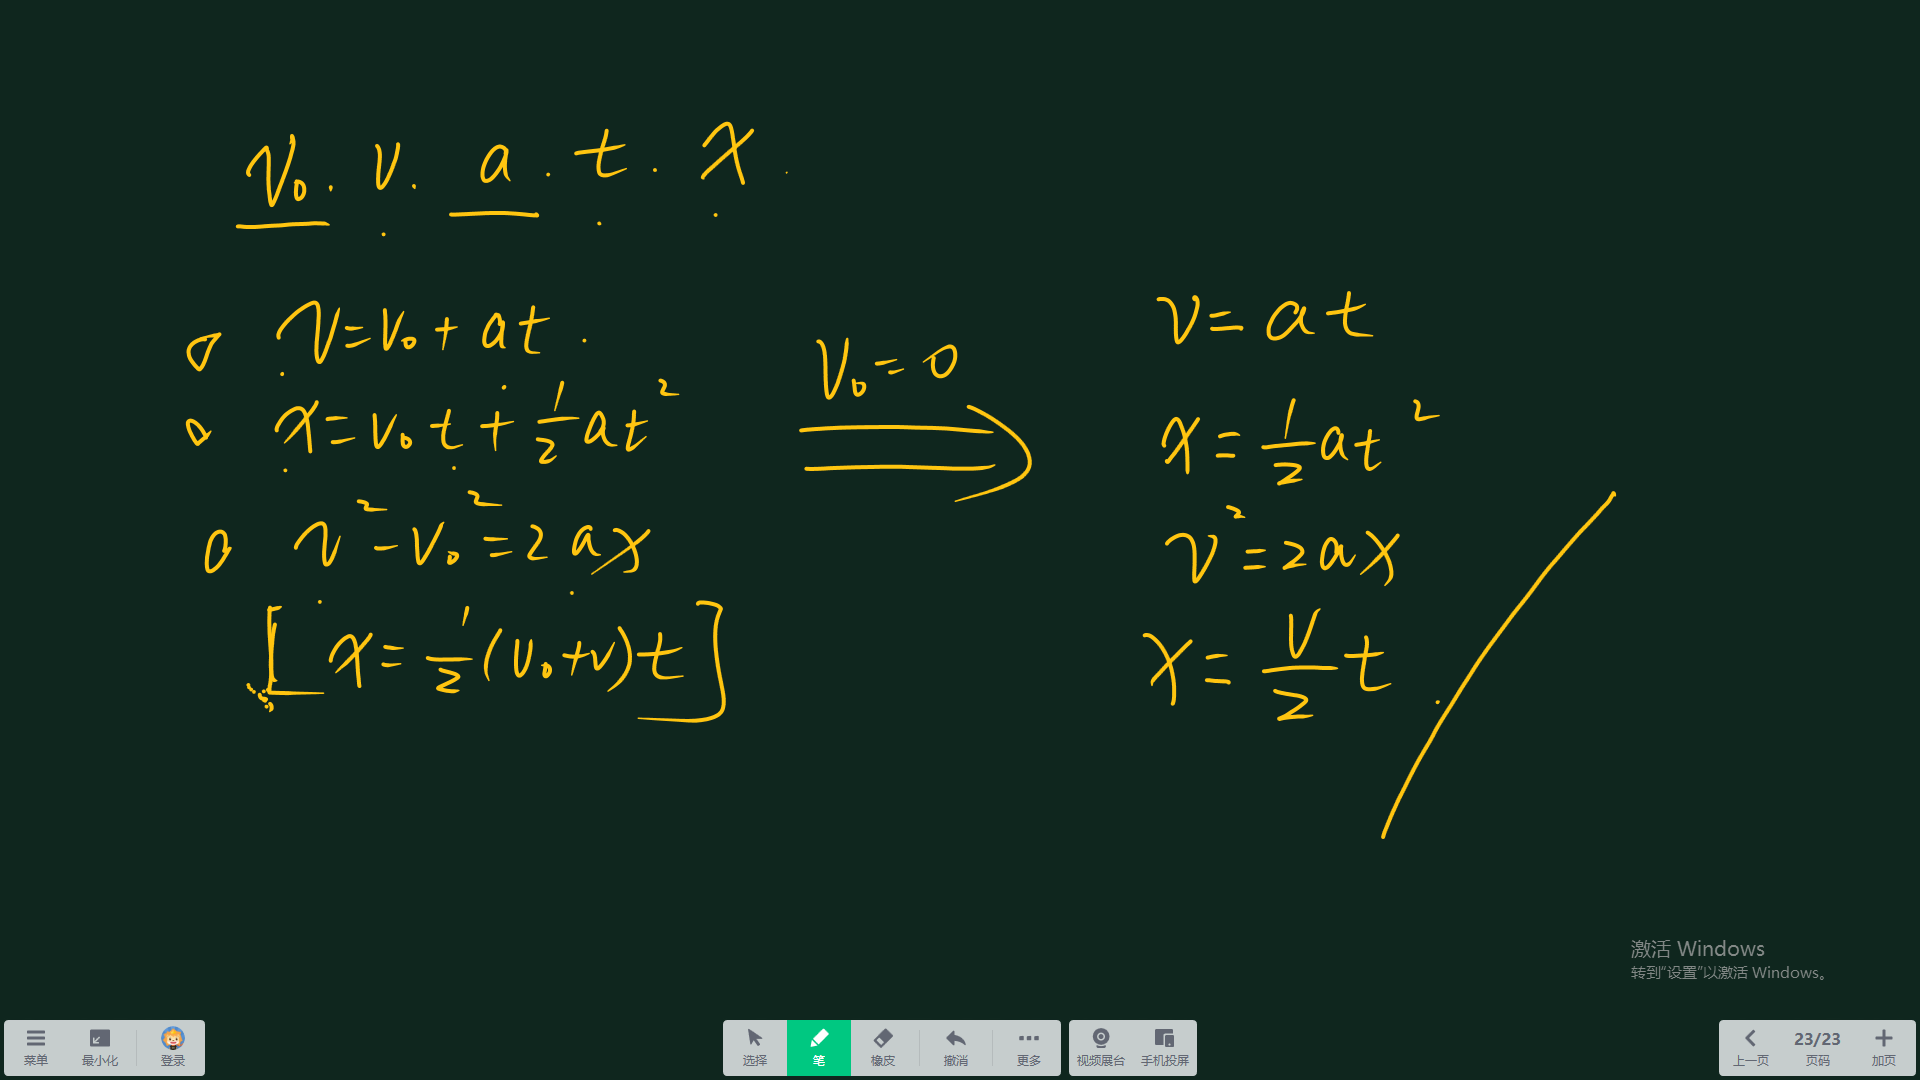 v₀. v. a. t. x.
v=v₀+at.
x=v₀t+½at²
v²-v₀²=2ax
[x=½(v₀+v)t]
v₀=0
v=at
x=½at²
v²=2ax
x=v/2 t.
激活 Windows
转到“设置”以激活 Windows。
菜单 最小化 登录 选择 笔 橡皮 撤消 更多 视频展台 手机投屏 上一页 23/23 页码 加页